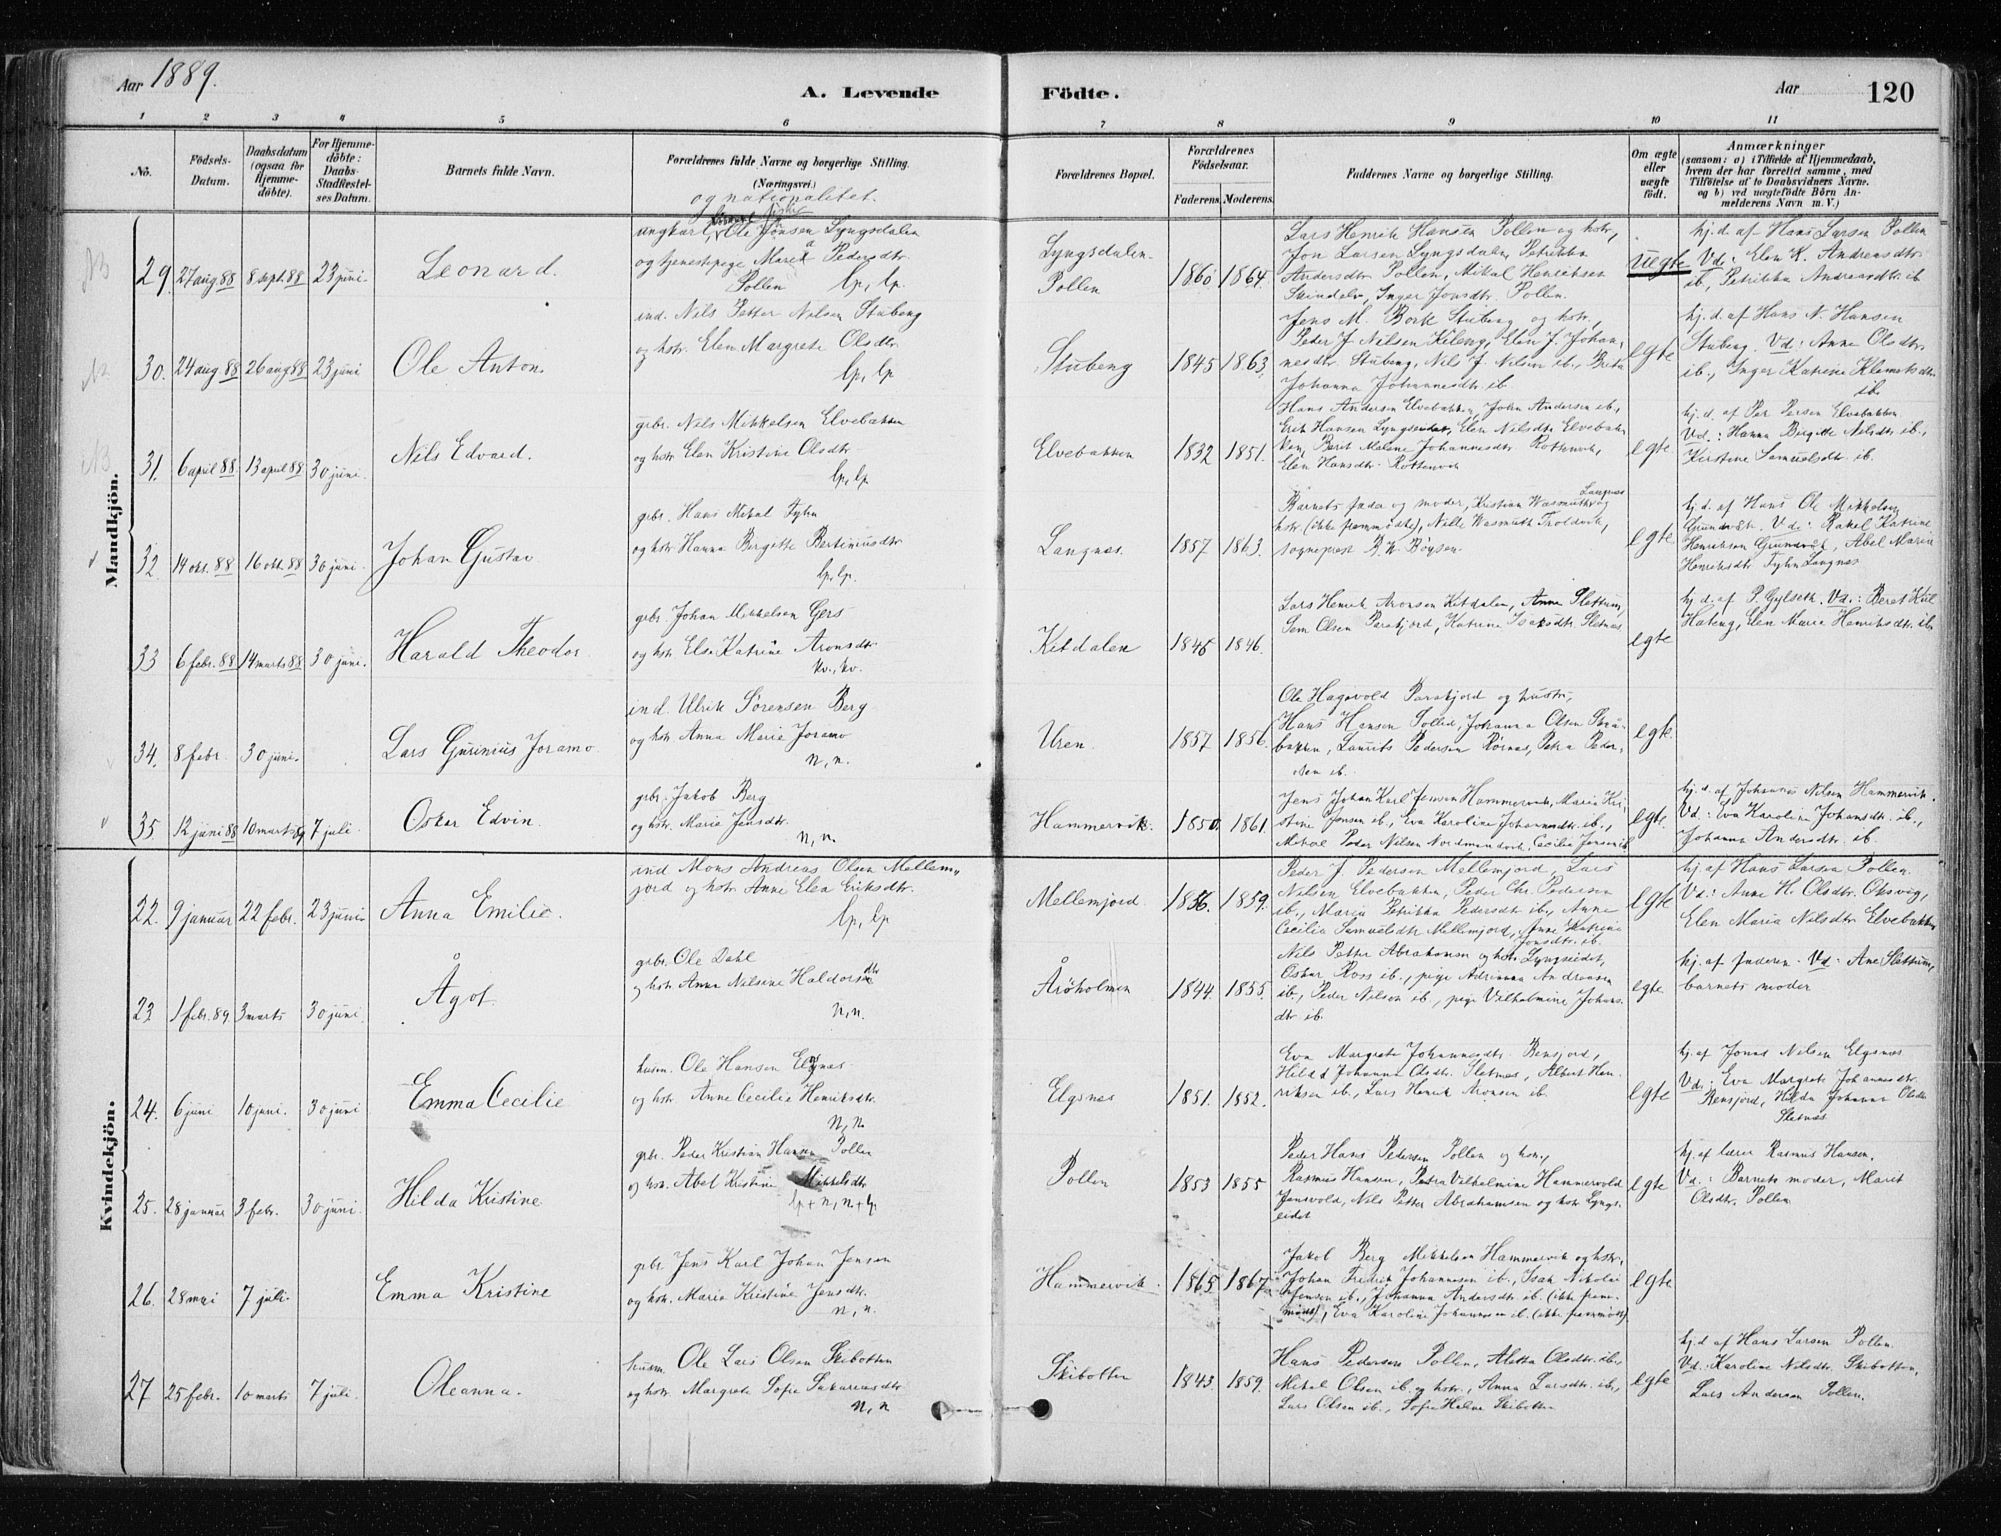 Aar 1889.
A. Levende
Födte.
Aar
120
1 2 3 4 5 6 7 8 9 10 11
No.
Födsels-
Datum.
Daabsdatum
(ogsaa for
Hjemme-
döbte).
For Hjemme-
döbte:
Daabs-
Stadfæstel-
ses Datum.
Barnets fulde Navn.
Forældrenes fulde Navne og borgerlige Stilling.
(Næringsvei.)
og nationalitet.
Forældrenes Bopæl.
Forældrenes
Födselsaar.
Faderens. Moderens.
Faddernes Navne og borgerlige Stilling.
Om ægte
eller
uægte
födt.
Anmærkninger
(saasom: a) i Tilfælde af Hjemmedaab,
hvem der har forrettet samme, med
Tilföielse af to Daabsvidners Navne.
og b) ved uægtefödte Börn An-
melderens Navn m. V.)
Mandkjön.
29. 27 aug. 88 8 sept. 88 23 juni
Leonard.
ungkarl Ole Jonsen Lyngsdalen
og tjenestpige Maria Pedersdtr.
Pollen lp, lp.
Lyngsdalen.
Pollen
1860 1864.
Lars Henrik Hansen Pollen og hstr,
Jon Larsen Lyngsdalen, Petrikka
Andersdtr Pollen, Mikal Henriksen
Skindalv, Inger Jonsdtr. Pollen.
uegte
hj. d. af Hans Larsen Pollen
Vd: Elen K. Andreasdtr
ib, Petrikka Andreasdtr ib
30. 24 aug. 88 26 aug 88 23 juni
Ole Anton.
ind. Nils Petter Nilsen Stubeng
og hstr. Elen Margrete Olsdtr.
lp, lp
Stubeng
1845 1863
Jens M. Bork Stubeng og hstr.,
Peder J. Nilsen Kileng, Elen J. Johan,
nesdtr. Stubeng, Nils J. Nilsen ib., Berta
Johanna Johannesdtr. ib.
egte
hj. d. af Hans N. Hansen
Stubeng. Vd: Anne Olsdtr.
ib., Inger Katrine Klemetsdtr
ib.
31. 6 april 88 13 april 88 30 juni.
Nils Edvard.
gbr. Nils Mikkelsen Elvebakken
og hstr Elen Kristine Olsdtr.
lp, lp
Elvebakken
1832 1851.
Hans Andersen Elvebakken, John Andersen ib.,
Erik Hansen Lyngseidet, Elen Nilsdtr. Elvebak
ken, Berit Malene Johannesdtr Rottenvik,
Elen Hansdtr. Rottenvik
egte
hj. d. af Per Persen Elvebakken.
Vd.: Hanna Bergitte Nilsdtr. ib.,
Kirstine Samuelsdtr. ib.
32. 14 okt. 88 16 okt. 88 30 juni.
Johan Gustav
gbr. Hans Mikal Fyhn
og hstr. Hanna Bergitte Bertiniusdtr.
lp, lp.
Langnæs.
1857 1863.
Barnets fader og moder, Kristian Wasmuth Langnæs og
hstr. (ikke fremmødte), Nille Wasmuth Troldvik,
sogneprest B. K. Bøysen
egte
hj. d. af Hans Ole Mikkelsen
Grundvik. Vd: Rakel Katrine
Henriksen Grundvik, Abel Maria
Henriksdtr. Fyhn Langnæs
33 6 febr. 88 14 marts 88 30 juni.
Harald Theodor.
gbr. Johan Mikkelsen Gjers
og hstr. Else Katrine Aronsdtr.
kv., kv.
Kitdalen
1845 1846.
Lars Henrik Aronsen Kitdalen, Anne Slettum,
Sem Olsen Parakjord, Katrine Isaksdtr. Sletnes
egte
hj. d. af P. Gylseth. Vd.: Beret Kiil
Hateng, Elen Maria Henriksdtr. ib
34. 8 febr. 30 juni.
Lars Gurinius Joramo.
ind. Ulrik Sørensen Berg
og hstr. Anna Marie Joramo
n, n.
Uren.
1857 1856.
Ole Hagevold Parakjord og hustr.,
Hans Hansen Sollid, Johanna Olsen Skrå-
bakken, Laurits Pedersen Rørnes, Petra Peder-
sen ib.
egte.
35. 12 juni 88 10 marts 89 7 juli.
Oskar Edvin.
gbr. Jakob Berg
og hstr. Maria Jensdtr.
n, n.
Hammervik.
1850 1861.
Jens Johan Karl Jensen Hammervik, Maria Kri-
stine Jensen ib., Eva Karoline Johannesdtr. ib.,
Mikal Peder Nilsen Nordmandvik, Cecilie Jensen ib
egte.
hj. d. af Johannes Nilsen Hammervik.
Vd.: Eva Karoline Johansdtr. ib.,
Johanna Andersdtr. ib.
Kvindekjön.
22. 9 januar 22 febr. 23 juni
Anna Emilie.
ind Mons Andreas Olsen Mellem
jord og hstr. Anne Elea Eriksdtr.
lp, lp
Mellemjord
1856. 1859.
Peder J. Pedersen Mellemjord, Lars
Nilsen, Elvebakken, Peder Chr. Pedersen
ib., Maria Petrikka Pedersdtr ib., Anne
Cecilie Samuelsdtr. Mellemjord, Anne Katrine
Jonsdtr. ib.
egte
hj. af Hans Larsen Pollen.
Vd: Anne H. Olsdtr. Oksvig,
Elen Maria Nilsdtr Elvebakken
23 1 febr. 89. 3 marts 30 juni
Ågot.
gbr. Ole Dahl
og hstr. Anna Nilsine Haldorsdtr
n, n.
Årøholmen
1844. 1855.
Nils Petter Abrahamsen og hstr. Lyngseidet,
Oskar Ross ib., pige Adrianna Andreasen
ib., Peder Nilsen ib., pige Vilhelmine Johans
dtr. ib.
egte
hj. af faderen. Vd: Ane Slettum,
barnets moder
24. 6 juni 10 juni. 30 juni
Emma Cecilie
husm. Ole Hansen Elgsnæs
og hstr. Anne Cecilie Henriksdtr.
n, n
Elgsnæs
1851. 1852.
Eva Margrete Johannesdtr. Bensjord,
Hilda Johanna Olsdtr. Sletnæs, Albert Hen
riksen ib., Lars Henrik Aronsen ib.
egte
hj. af Jonas Nilsen Elgsnæs
Vd.: Eva Margrete Johannesdtr.
Bensjord, Hilda Johanna Olsdtr
Sletnæs
25. 28 januar 3 febr. 30 juni.
Hilda Kristine
gbr. Peder Kristian Hansen Pollen
og hstr. Abel Kristine Mikkelsdtr
lp + n, n + lp.
Pollen
1853 1855
Peder Hans Pedersen Pollen og hstr.,
Rasmus Hansen, Petra Vilhelmine Hammervold
Jensvold, Nils Petter Abrahamsen og hstr Lyngs-
eidet
egte
hj. af lærer Rasmus Hansen.
Vd.: Barnets moder, Marit
Olsdtr. Pollen.
26. 28 mai 7 juli.
Emma Kristine
gbr. Jens Karl Johan Jensen
og hstr. Maria Kristine Jensdtr.
n, n.
Hammervik.
1865 1867.
Jakob Berg Mikkelsen Hammervik og hstr.,
Johan Fredrik Johannesen ib., Isak Nikolai
Jensen ib., Johanna Andersdtr ib. (ikke frem-
mødt), Eva Karoline Johannesen ib. (ikke fremmødt)
egte
27 25 febr. 10 marts 7 juli.
Oleanna.
husm Ole Lars Olsen Skibotten
og hstr. Margrete Sofie Sakariasdtr
n, n
Skibotten
1843. 1859.
Hans Pedersen Pollen, Aletta Olsdtr. ib.,
Mikal Olsen ib. og hstr., Anna Larsdtr. ib.,
Lars Olsen ib., Sofie Helene Skibotten
egte
hj. d af Hans Larsen Pollen
Vd. Karoline Nilsdtr. Skibotten,
Lars Andersen Pollen.